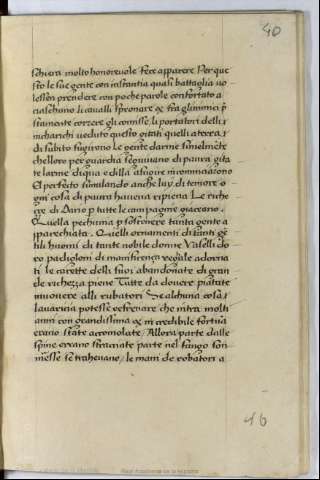 40
schiera molto honorevole fece apparere Per que
sto le sue gente con instantia quasi battaglia vo
lesson prendere con poche parole confortato a
ciaschuno li cavalli spronare & fra gli inimici p
stamente correre gli comisse li portatori delli
incharichi veduto questo gittati quelli a terra
di subito fugirono Le gente darme similmente
che lloro per guardia seguivano di paura gitta
te larme di qua e di lla a fugire incominciarono
El perfecto simulando anche luy di temore o
gni cosa di paura haveva ripiena Le riche
çe di Dario p tutte le campagne giaceano
Quella pechunia p sostenere tanta gente a
sparechiata Quelli ornamenti di tanti ge
tili huomi di tante nobile donne Vaselli do
ro padiglioni di manificenza regale adorna
ti le carette delli suoi abandonate di gran
de richezza piene Tutte da dovere pietate
muovere alli rubatori Se alchuna cosa
lavaricia potesse refrenare che intra molti
anni con grandissima & incredibile fortuna
erano state accomolate Allora parte dalle
spine erano stracciate parte nel fango som
messe se trahevano le mani de robatori a
46
Real Academia de la Historia